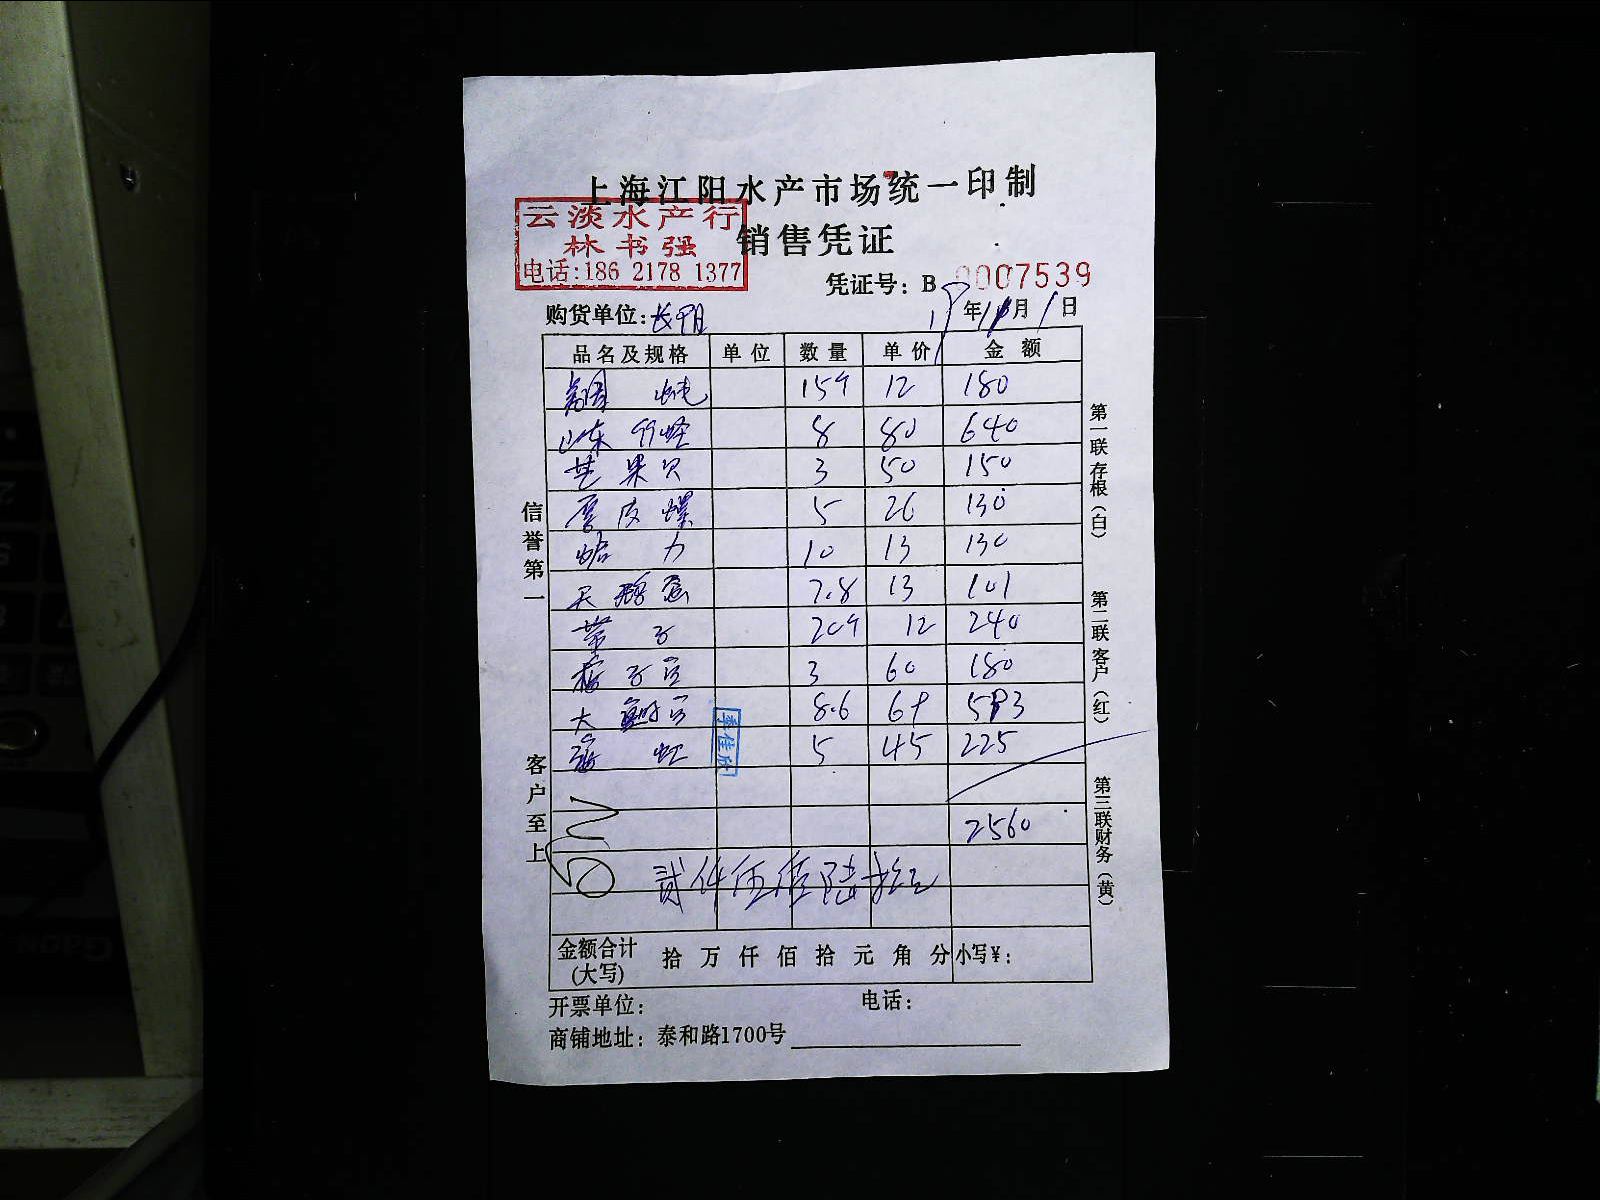 上海江阳水产市场统一印制
云淡水产行
林书强
电话:186 2178 1377
销售凭证
凭证号：B 0007539
购货单位：长阳
年 月 1日
品名及规格 单位 数量 单价 金额
15个 12 180
山东竹蛏 8 80 640
芒果贝 3 50 150
皮螺 5 26 130
蛤力 10 13 130
天鹅蛋 7.8 13 101
带子 20个 12 240
3 60 180
大 8.6 69 593
5 45 225
2560
贰仟伍佰陆拾元
金额合计(大写) 拾 万 仟 佰 拾 元 角 分 小写¥：
开票单位： 电话：
商铺地址：泰和路1700号
信誉第一
客户至上
第一联存根（白）
第二联客户（红）
第三联财务（黄）
李佳欣